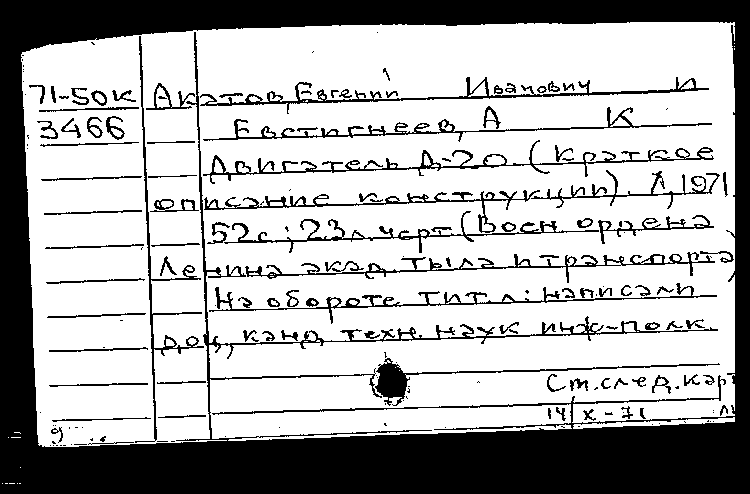 71-50к Акатов, Евгений Иванович и
3466 Евстигнеев, А К
Двигатель Д-20. (Краткое
описание конструкции). Л, 1971
52с; 23л. черт (Воен. ордена
Ленина акад. тыла и транспорта)
На обороте тит. л: написали
доц, канд техн. наук инж-полк.
См. след. кар
14/X-71
9